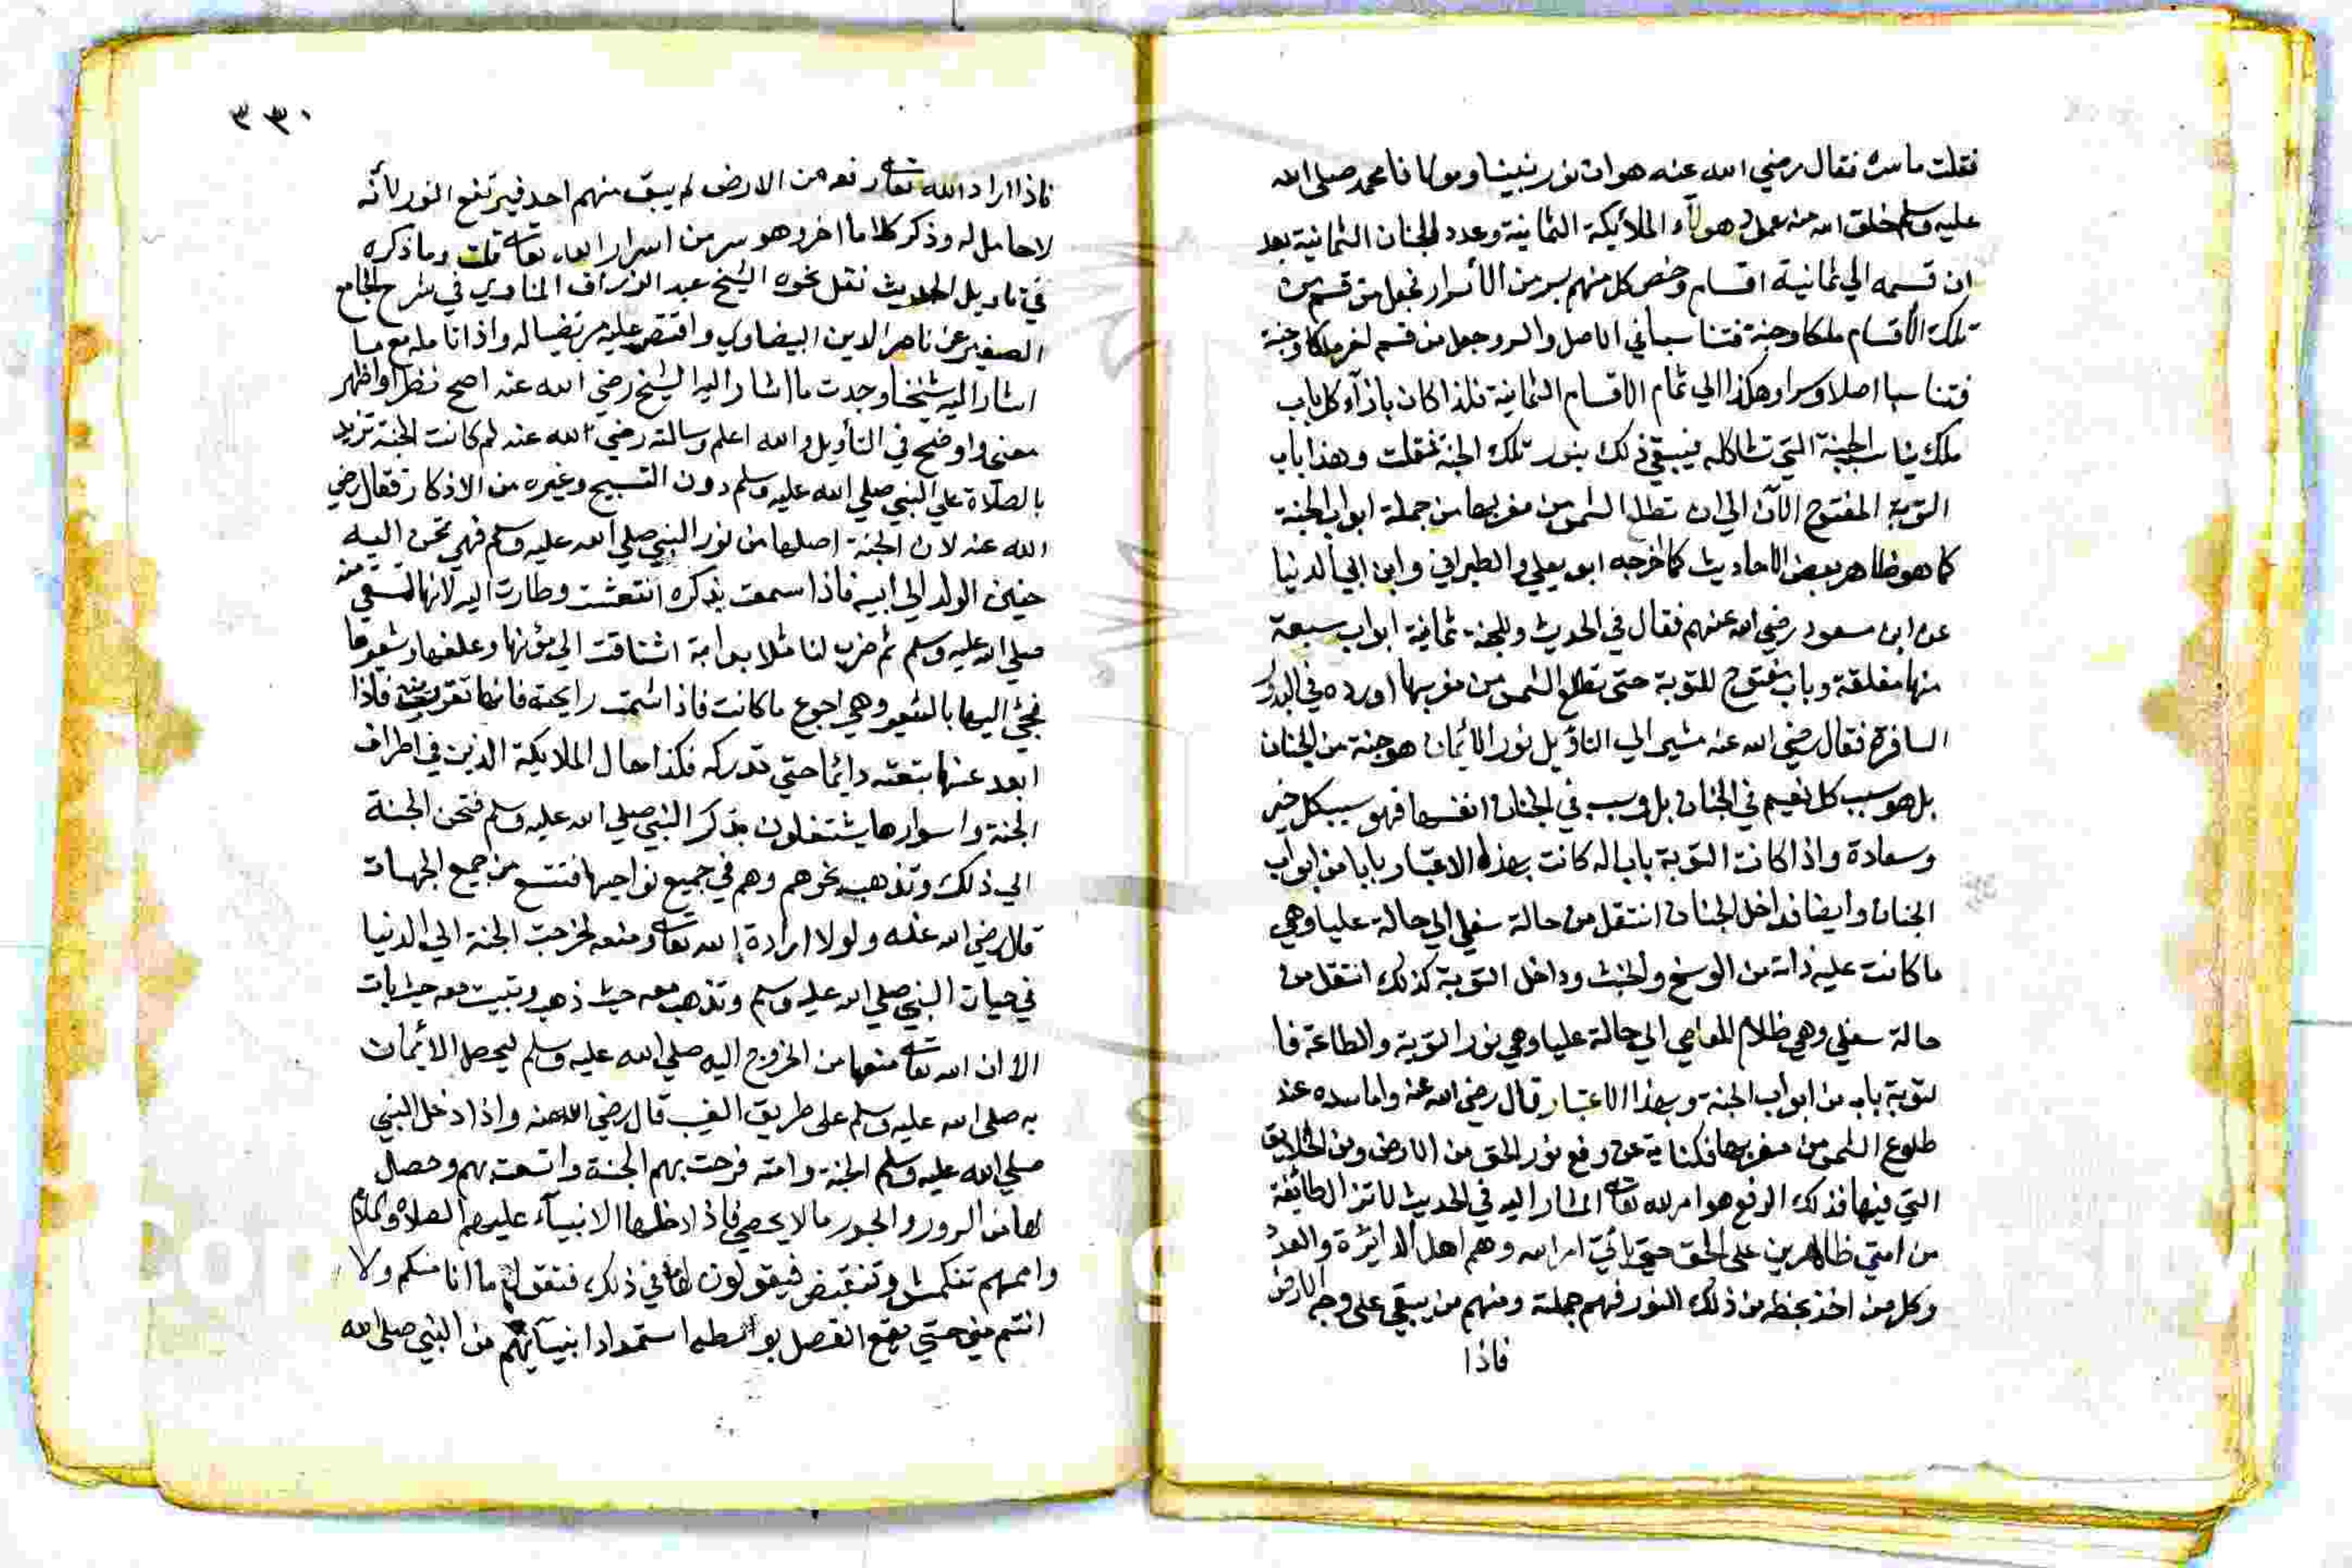 فقلت ما سره فقال رضي الله عنه هو ان نور نبينا ومولانا محمد صلى الله
عليه وسلم خلق الله منه عمل هولآء الملائكة الثمانية وعدد الجنان الثمانية بعد
ان قسمه الي ثمانية اقسام وخص كل منهم بسر من الأسرار فجعل من قسم من
تلك الأقسام ملكا وجنة فتناسبا في الاصل والسر وجعل من قسم اخر ملكا وجنة
فتناسبا اصلا وسرا وهكذا الي تمام الاقسام الثمانية فلذا كان بازآء كل باب
ملك يناسب الجنة التي تشاكله فيسقي ذلك بنور تلك الجنة فقلت وهذا باب
التوبة المفتوح الآن الي ان تطلع الشمس من مغربها من جملة ابواب الجنة
كما هو ظاهر بعض الاحاديث كما خرجه ابو يعلي والطبراني وابن ابي الدنيا
عن ابن مسعود رضي الله عنهم فقال في الحديث وللجنة ثمانية ابواب سبعة
منها مغلقة وباب مفتوح للتوبة حتى تطلع الشمس من مغربها اورده في البدور
السافرة فقال رضي الله عنه مشيرا الي التاويل نور الأئمان هو جنة من الجنان
بل هو سبب كل نعيم في الجنان بل وسبب في الجنان انفسها فهو سبب كل خير
وسعادة واذا كانت التوبة بابا له كانت بهذا الاعتبار بابا من ابواب
الجنان وايضا فداخل الجنان انتقل من حالة سفلي الي حالة عليا وهي
ما كانت عليه ذاته من الوسخ والخبث وداخل التوبة كذلك انتقل من
حالة سفلي وهي ظلام المعاصي الي حالة عليا وهي نور التوبة والطاعة فا
لتوبة باب من ابواب الجنة وبهذا الاعتبار قال رضي الله عنه واما سده عند
طلوع الشمس من مغربها فكناية عن رفع نور الحق من الارض ومن الخلايق
التي فيها فذلك الرفع هو امر الله تعالى المشار اليه في الحديث لا تزال طائفة
من امتي ظاهرين على الحق حتى يأتي امر الله وهم اهل الدائرة والعدد
وكل من اخذ بحظه من ذلك النور فهم جملته ومنهم من يبقي على وجه الارض
فاذا
٣٣٠
فاذا اراد الله تعالى رفعه من الارض لم يبق منهم احد فيرتفع النور لأنه
لا حامل له وذكر كلاما اخر وهو سر من اسرار الله تعالى قلت وما ذكره
في تاويل الحديث نقل نحوه الشيخ عبد الرؤاف المناوي في شرح الجامع
الصغير عن ناصر الدين البيضاوي واقتصر عليه مرتضيا له واذا تامله مع ما
اشار اليه شيخنا وجدت ما اشار اليه الشيخ رضي الله عنه اصح نظرا واظهر
معني واوضح في التأويل والله اعلم وسالته رضي الله عنه لم كانت الجنة تزيد
بالصلاة على النبي صلي الله عليه وسلم دون التسبيح وغيره من الاذكار فقال رضي
الله عنه لان الجنة اصلها من نور النبي صلي الله عليه وسلم فهي تحن اليه
حنين الولد الي ابيه فاذا سمعت بذكره انتعشت وطارت اليه لانها تسقي منه
صلي الله عليه وسلم ثم ضرب لنا مثلا بدابة اشتاقت الي مؤنها وعلفها وشعيرها
فجئ اليها بالشعير وهي اجوع ما كانت فاذا شمت رايحته فانها تقرب منه فاذا
ابعد عنها تبعته دايما حتي تدركه فكذا حال الملايكة الذين في اطراف
الجنة واسوارها يشتغلون بذكر النبي صلي الله عليه وسلم فتحن الجنة
الي ذلك وتذهب نحوهم وهم في جميع نواحيها فتتسع من جميع الجهات
قال رضي الله عنه ولولا ارادة الله تعالى ومنعه لخرجت الجنة الي الدنيا
في حيات النبي صلي الله عليه وسلم وتذهب معه حيث ذهب وتبيت معه حيث بات
الا ان الله تعالى منعها من الخروج اليه صلي الله عليه وسلم ليحصل الأئمان
به صلى الله عليه وسلم على طريق الغيب قال رضي الله عنه واذا دخل النبي
صلي الله عليه وسلم الجنة وامته فرحت بهم الجنة واتسعت بهم وحصل
لها من السرور والحبور ما لا يحصي فاذا دخلها الانبيآء عليهم الصلاة والسلام
واممهم تنكمش وتنقبض فيقولون لها في ذلك فتقول ما انا منكم ولا
انتم مني حتي يقع الفصل بواسطه استمداد انبيآئهم من النبي صلى الله